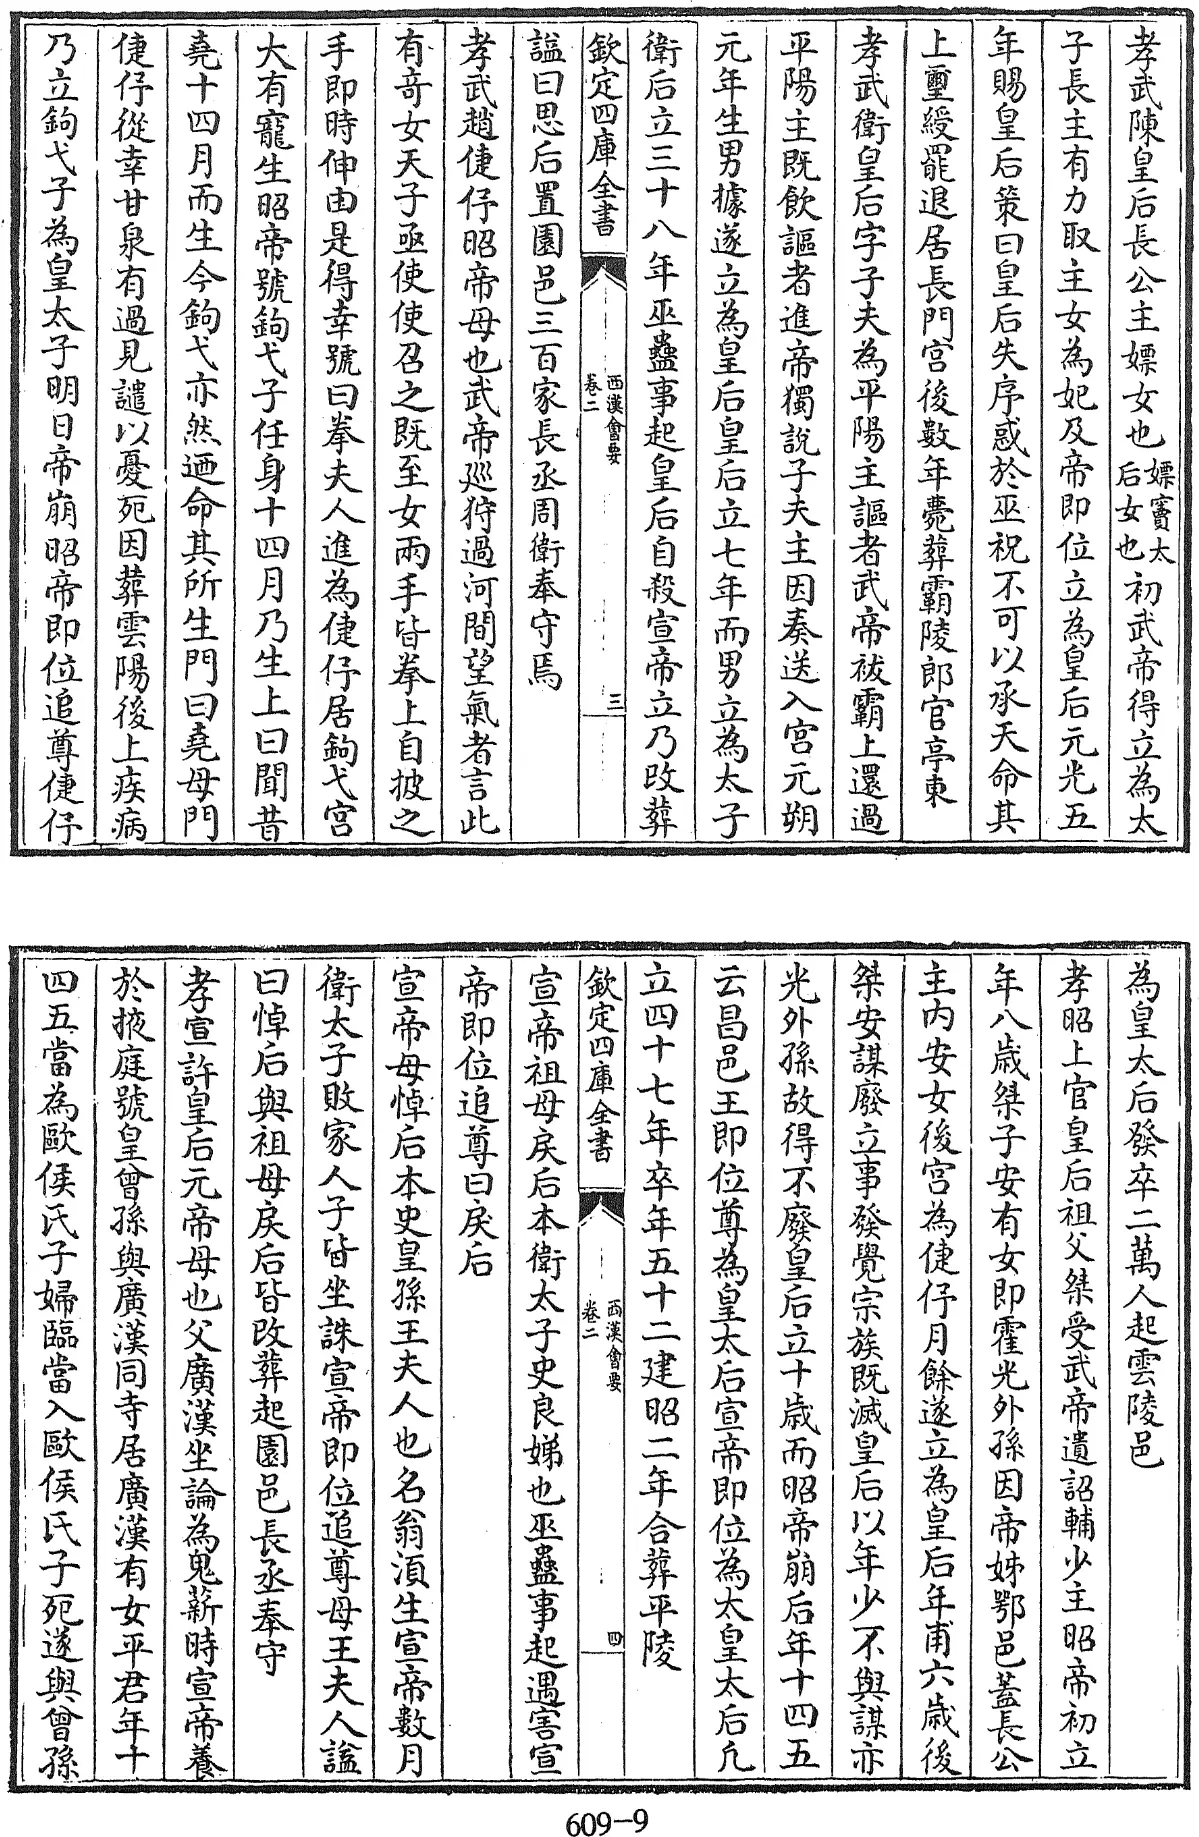 孝武陳皇后長公主嫖女也嫖竇太后女也初武帝得立為太
子長主有力取主女為妃及帝即位立為皇后元光五
年賜皇后策曰皇后失序惑於巫祝不可以承天命其
上璽綬罷退居長門宫後數年薨葬霸陵郎官亭東
孝武衛皇后字子夫為平陽主謳者武帝祓霸上還過
平陽主既飲謳者進帝獨說子夫主因奏送入宫元朔
元年生男據遂立為皇后皇后立七年而男立為太子
衛后立三十八年巫蠱事起皇后自殺宣帝立乃改葬
欽定四庫全書
西漢會要
卷二
三
謚曰思后置園邑三百家長丞周衛奉守焉
孝武趙倢伃昭帝母也武帝廵狩過河間望氣者言此
有奇女天子亟使使召之既至女兩手皆拳上自披之
手即時伸由是得幸號曰拳夫人進為倢伃居鉤弋宫
大有寵生昭帝號鉤弋子任身十四月乃生上曰聞昔
堯十四月而生今鉤弋亦然迺命其所生門曰堯母門
倢伃從幸甘泉有過見譴以憂死因葬雲陽後上疾病
乃立鉤弋子為皇太子明日帝崩昭帝即位追尊倢伃
為皇太后發卒二萬人起雲陵邑
孝昭上官皇后祖父桀受武帝遺詔輔少主昭帝初立
年八歲桀子安有女即霍光外孫因帝姊鄂邑蓋長公
主内安女後宫為倢伃月餘遂立為皇后年甫六歲後
桀安謀廢立事發覺宗族既滅皇后以年少不與謀亦
光外孫故得不廢皇后立十歲而昭帝崩后年十四五
云昌邑王即位尊為皇太后宣帝即位為太皇太后凢
立四十七年卒年五十二建昭二年合葬平陵
欽定四庫全書
西漢會要
卷二
四
宣帝祖母戾后本衛太子史良娣也巫蠱事起遇害宣
帝即位追尊曰戾后
宣帝母悼后本史皇孫王夫人也名翁湏生宣帝數月
衛太子敗家人子皆坐誅宣帝即位追尊母王夫人謚
曰悼后與祖母戾后皆改葬起園邑長丞奉守
孝宣許皇后元帝母也父廣漢坐論為鬼薪時宣帝養
於掖庭號皇曾孫與廣漢同寺居廣漢有女平君年十
四五當為歐侯氏子婦臨當入歐侯氏子死遂與曾孫
609-9